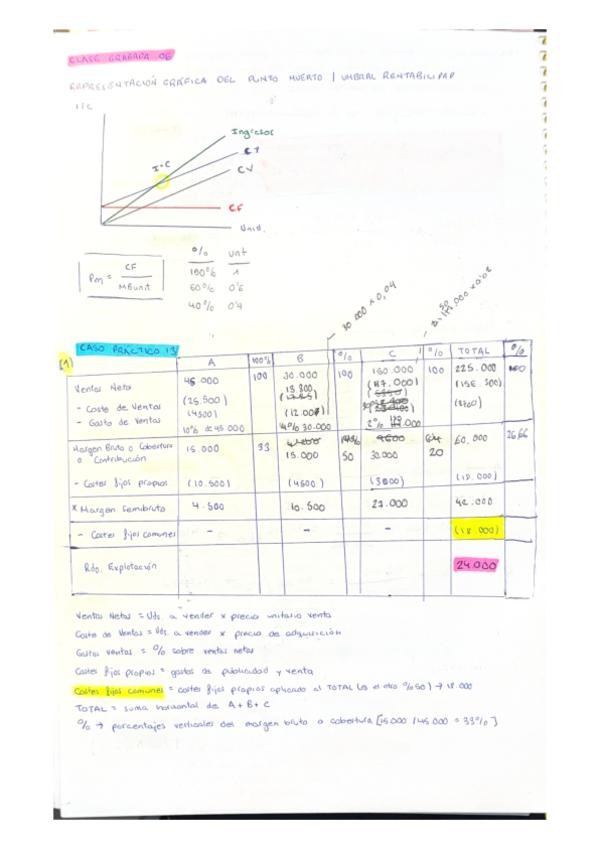 CLASE GRABADA 06
REPRESENTACIÓN GRÁFICA DEL PUNTO MUERTO / UMBRAL RENTABILIDAD
I/C
Ingresos
CT
I=C
CV
CF
Unid.
% unt
100% 1
60% 0'6
40% 0'4
Pm = CF / MBunit
30.000 x 0,04
CASO PRÁCTICO 13
(1)
A 100% B % C % TOTAL %
Ventas Netas 45.000 100 30.000 100 150.000 100 225.000 100
- Coste de Ventas (25.500) (13.800) (117.000) (156.300)
- Gasto de Ventas (4500) (1.200) (8700)
10% de 45.000 4% 30.000
Margen Bruto o Cobertura o Contribución 15.000 33 15.000 50 30.000 20 60.000 26,66
- Costes fijos propios (10.500) (4500) (3000) (18.000)
* Margen Semibruto 4.500 10.500 27.000 42.000
- Costes fijos comunes - - - (18.000)
Rdo. Explotación 24.000
Ventas Netas = Uds. a vender x precio unitario venta
Coste de Ventas = Uds. a vender x precio de adquisición
Gastos ventas = % sobre ventas netas
Costes fijos propios = gastos de publicidad y venta
Costes fijos comunes = costes fijos propios aplicado al TOTAL (es el otro % 50) → 18.000
TOTAL = suma horizontal de A + B + C
% → porcentajes verticales del margen bruto o cobertura [15.000 / 45.000 = 33%]